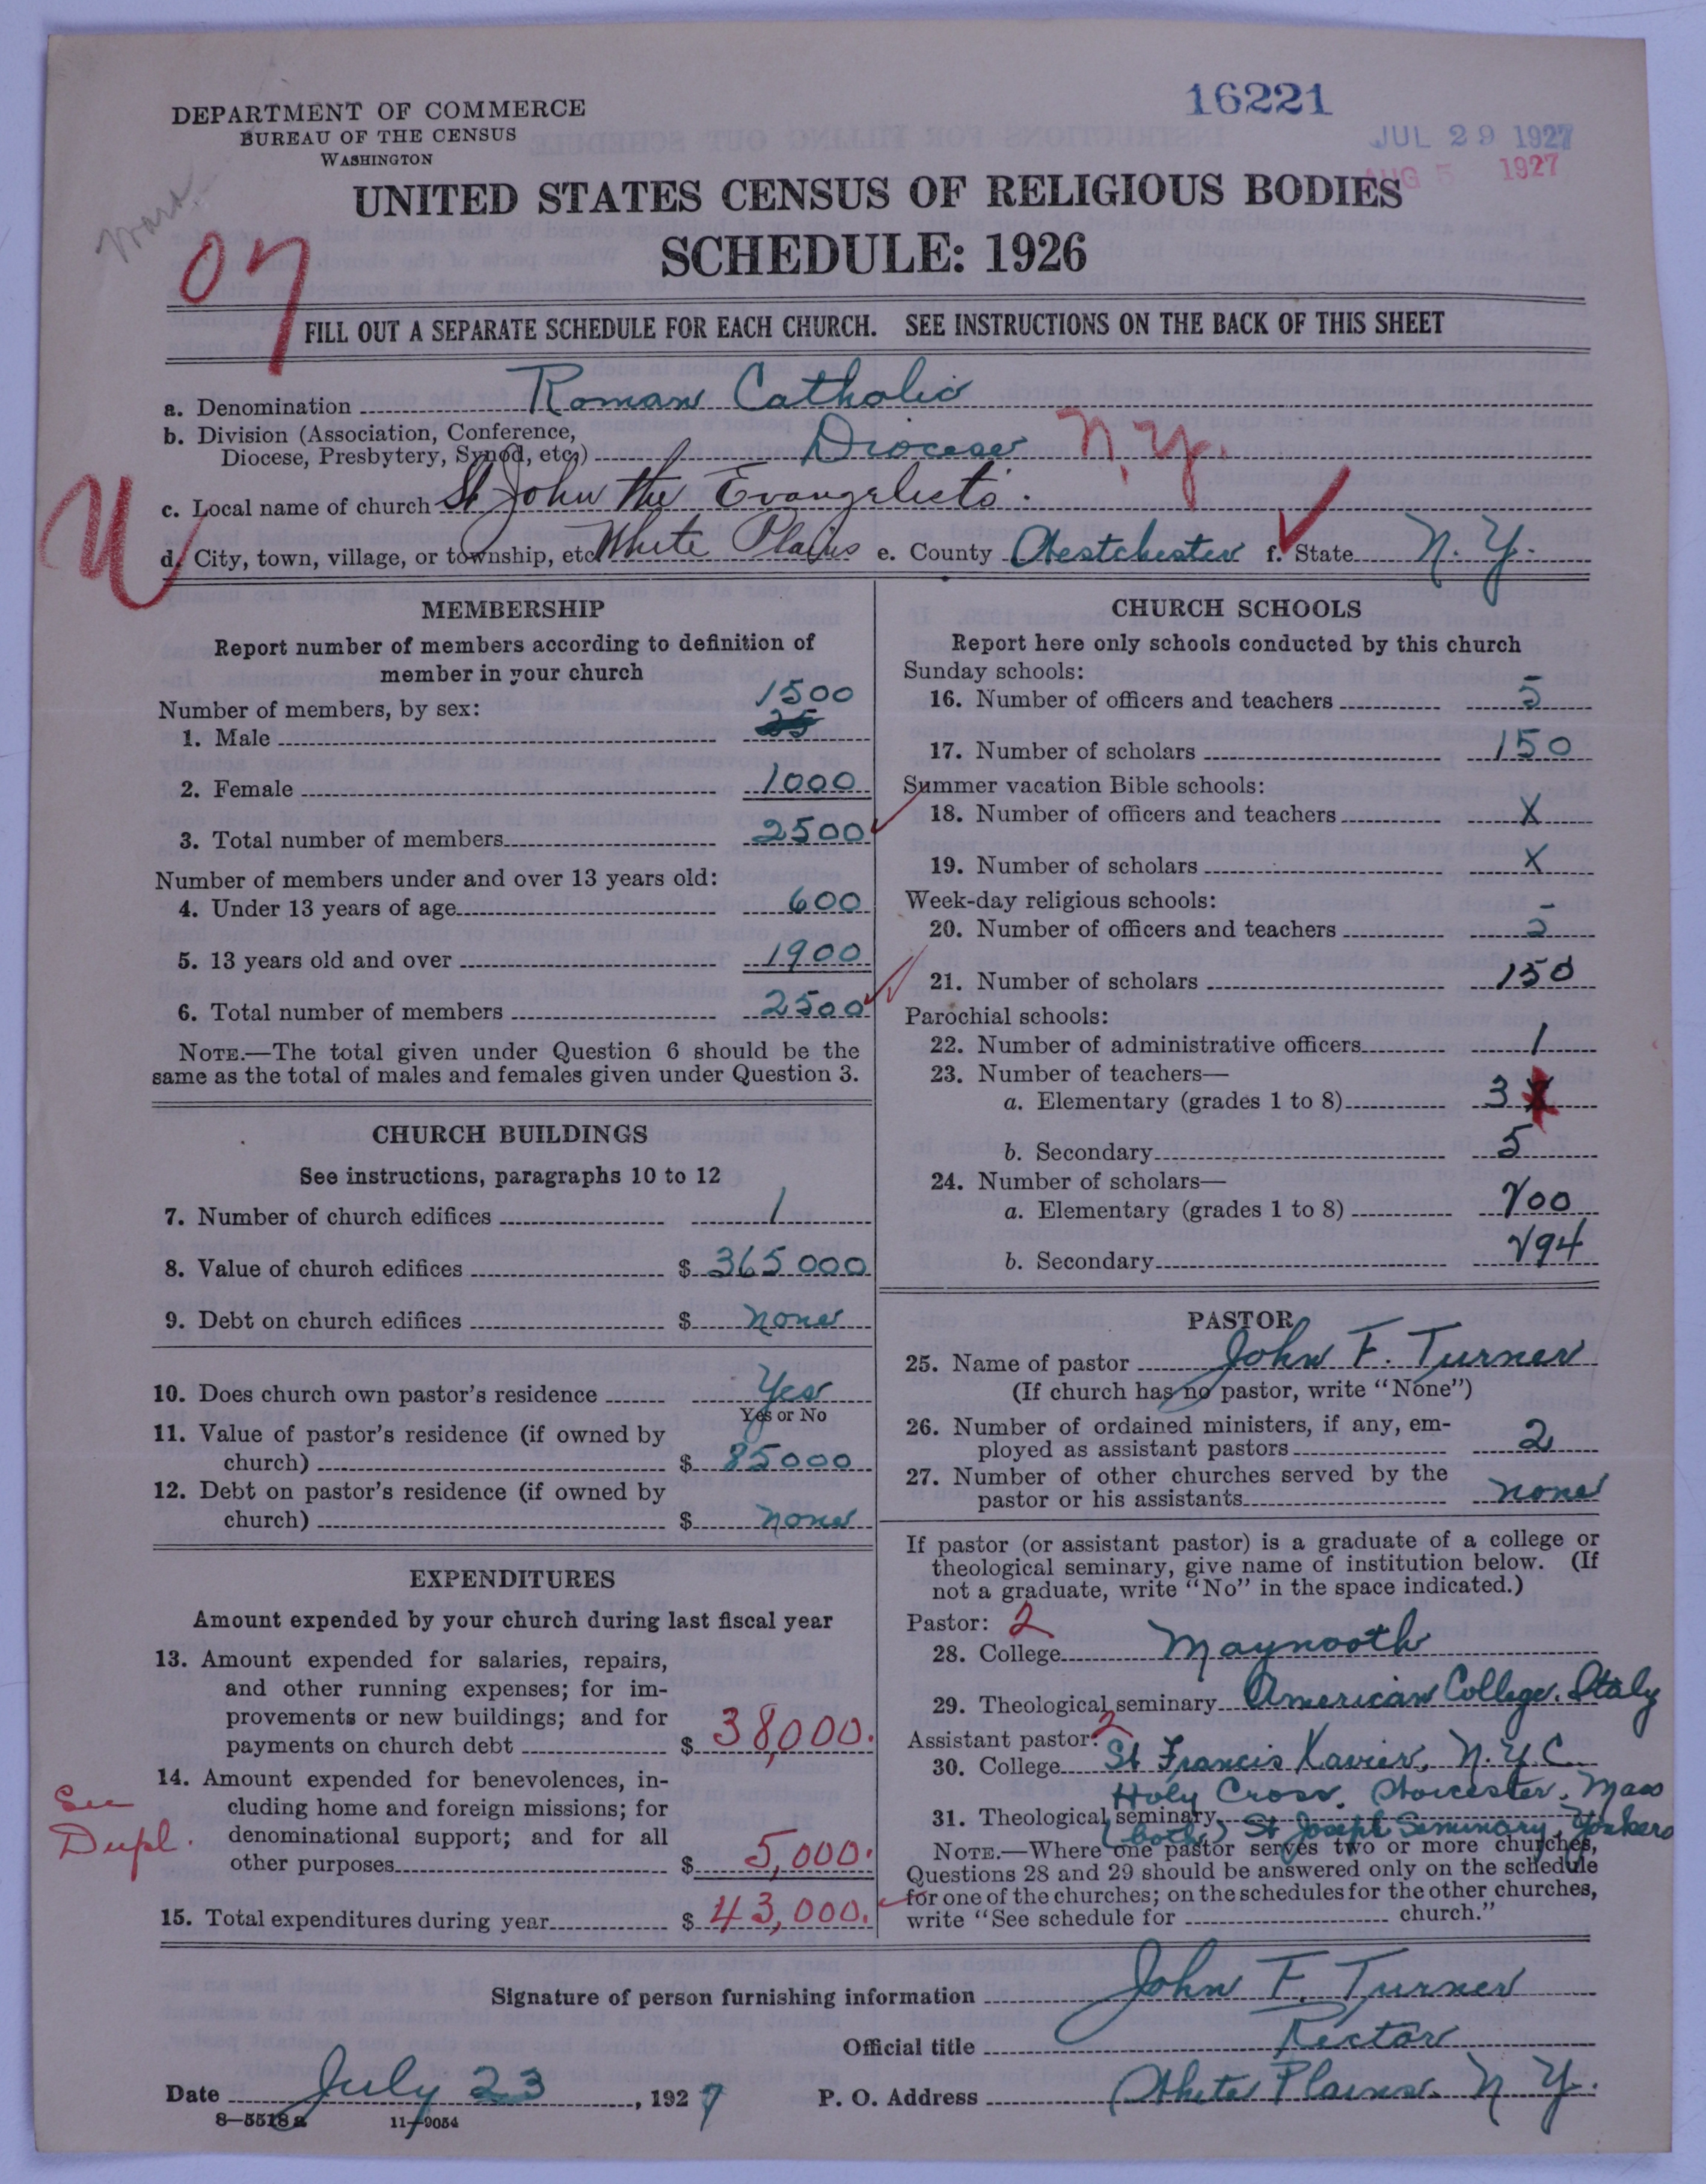 16221
JUL 29 1927
AUG 5 1927
DEPARTMENT OF COMMERCE
BUREAU OF THE CENSUS
WASHINGTON
Ward
UNITED STATES CENSUS OF RELIGIOUS BODIES
SCHEDULE: 1926
FILL OUT A SEPARATE SCHEDULE FOR EACH CHURCH. SEE INSTRUCTIONS ON THE BACK OF THIS SHEET
a. Denomination Roman Catholic
b. Division (Association, Conference,
Diocese, Presbytery, Synod, etc.) Diocese N.Y.
c. Local name of church St John the Evangelists.
U
d. City, town, village, or township, etc. White Plains e. County Westchester f. State N.Y.
MEMBERSHIP
Report number of members according to definition of
member in your church
Number of members, by sex:
1. Male 1500
2. Female 1000
3. Total number of members 2500
Number of members under and over 13 years old:
4. Under 13 years of age 600
5. 13 years old and over 1900
6. Total number of members 2500
NOTE.—The total given under Question 6 should be the
same as the total of males and females given under Question 3.
CHURCH BUILDINGS
See instructions, paragraphs 10 to 12
7. Number of church edifices 1
8. Value of church edifices $ 365000
9. Debt on church edifices $ none
10. Does church own pastor's residence Yes
Yes or No
11. Value of pastor's residence (if owned by
church) $ 85000
12. Debt on pastor's residence (if owned by
church) $ none
EXPENDITURES
Amount expended by your church during last fiscal year
13. Amount expended for salaries, repairs,
and other running expenses; for im-
provements or new buildings; and for
payments on church debt $ 38,000.
14. Amount expended for benevolences, in-
cluding home and foreign missions; for
denominational support; and for all
other purposes $ 5,000.
See
Dupl.
15. Total expenditures during year $ 43,000.
CHURCH SCHOOLS
Report here only schools conducted by this church
Sunday schools:
16. Number of officers and teachers 5
17. Number of scholars 150
Summer vacation Bible schools:
18. Number of officers and teachers X
19. Number of scholars X
Week-day religious schools:
20. Number of officers and teachers 5
21. Number of scholars 150
Parochial schools:
22. Number of administrative officers 1
23. Number of teachers—
a. Elementary (grades 1 to 8) 3
b. Secondary 5
24. Number of scholars—
a. Elementary (grades 1 to 8)
b. Secondary
PASTOR
25. Name of pastor John F. Turner
(If church has no pastor, write "None")
26. Number of ordained ministers, if any, em-
ployed as assistant pastors 2
27. Number of other churches served by the
pastor or his assistants none
If pastor (or assistant pastor) is a graduate of a college or
theological seminary, give name of institution below. (If
not a graduate, write "No" in the space indicated.)
Pastor: 2
28. College Maynooth
29. Theological seminary American College, Italy
Assistant pastor: 2
30. College St Francis Xavier, N.Y.C
Holy Cross, Worcester, Mass
31. Theological seminary (both) St Joseph Seminary, Yonkers
NOTE.—Where one pastor serves two or more churches,
Questions 28 and 29 should be answered only on the schedule
for one of the churches; on the schedules for the other churches,
write "See schedule for church."
Signature of person furnishing information John F. Turner
Official title Rector
Date July 23, 1927 P. O. Address White Plains, N.Y.
8—5518 a 11—9054